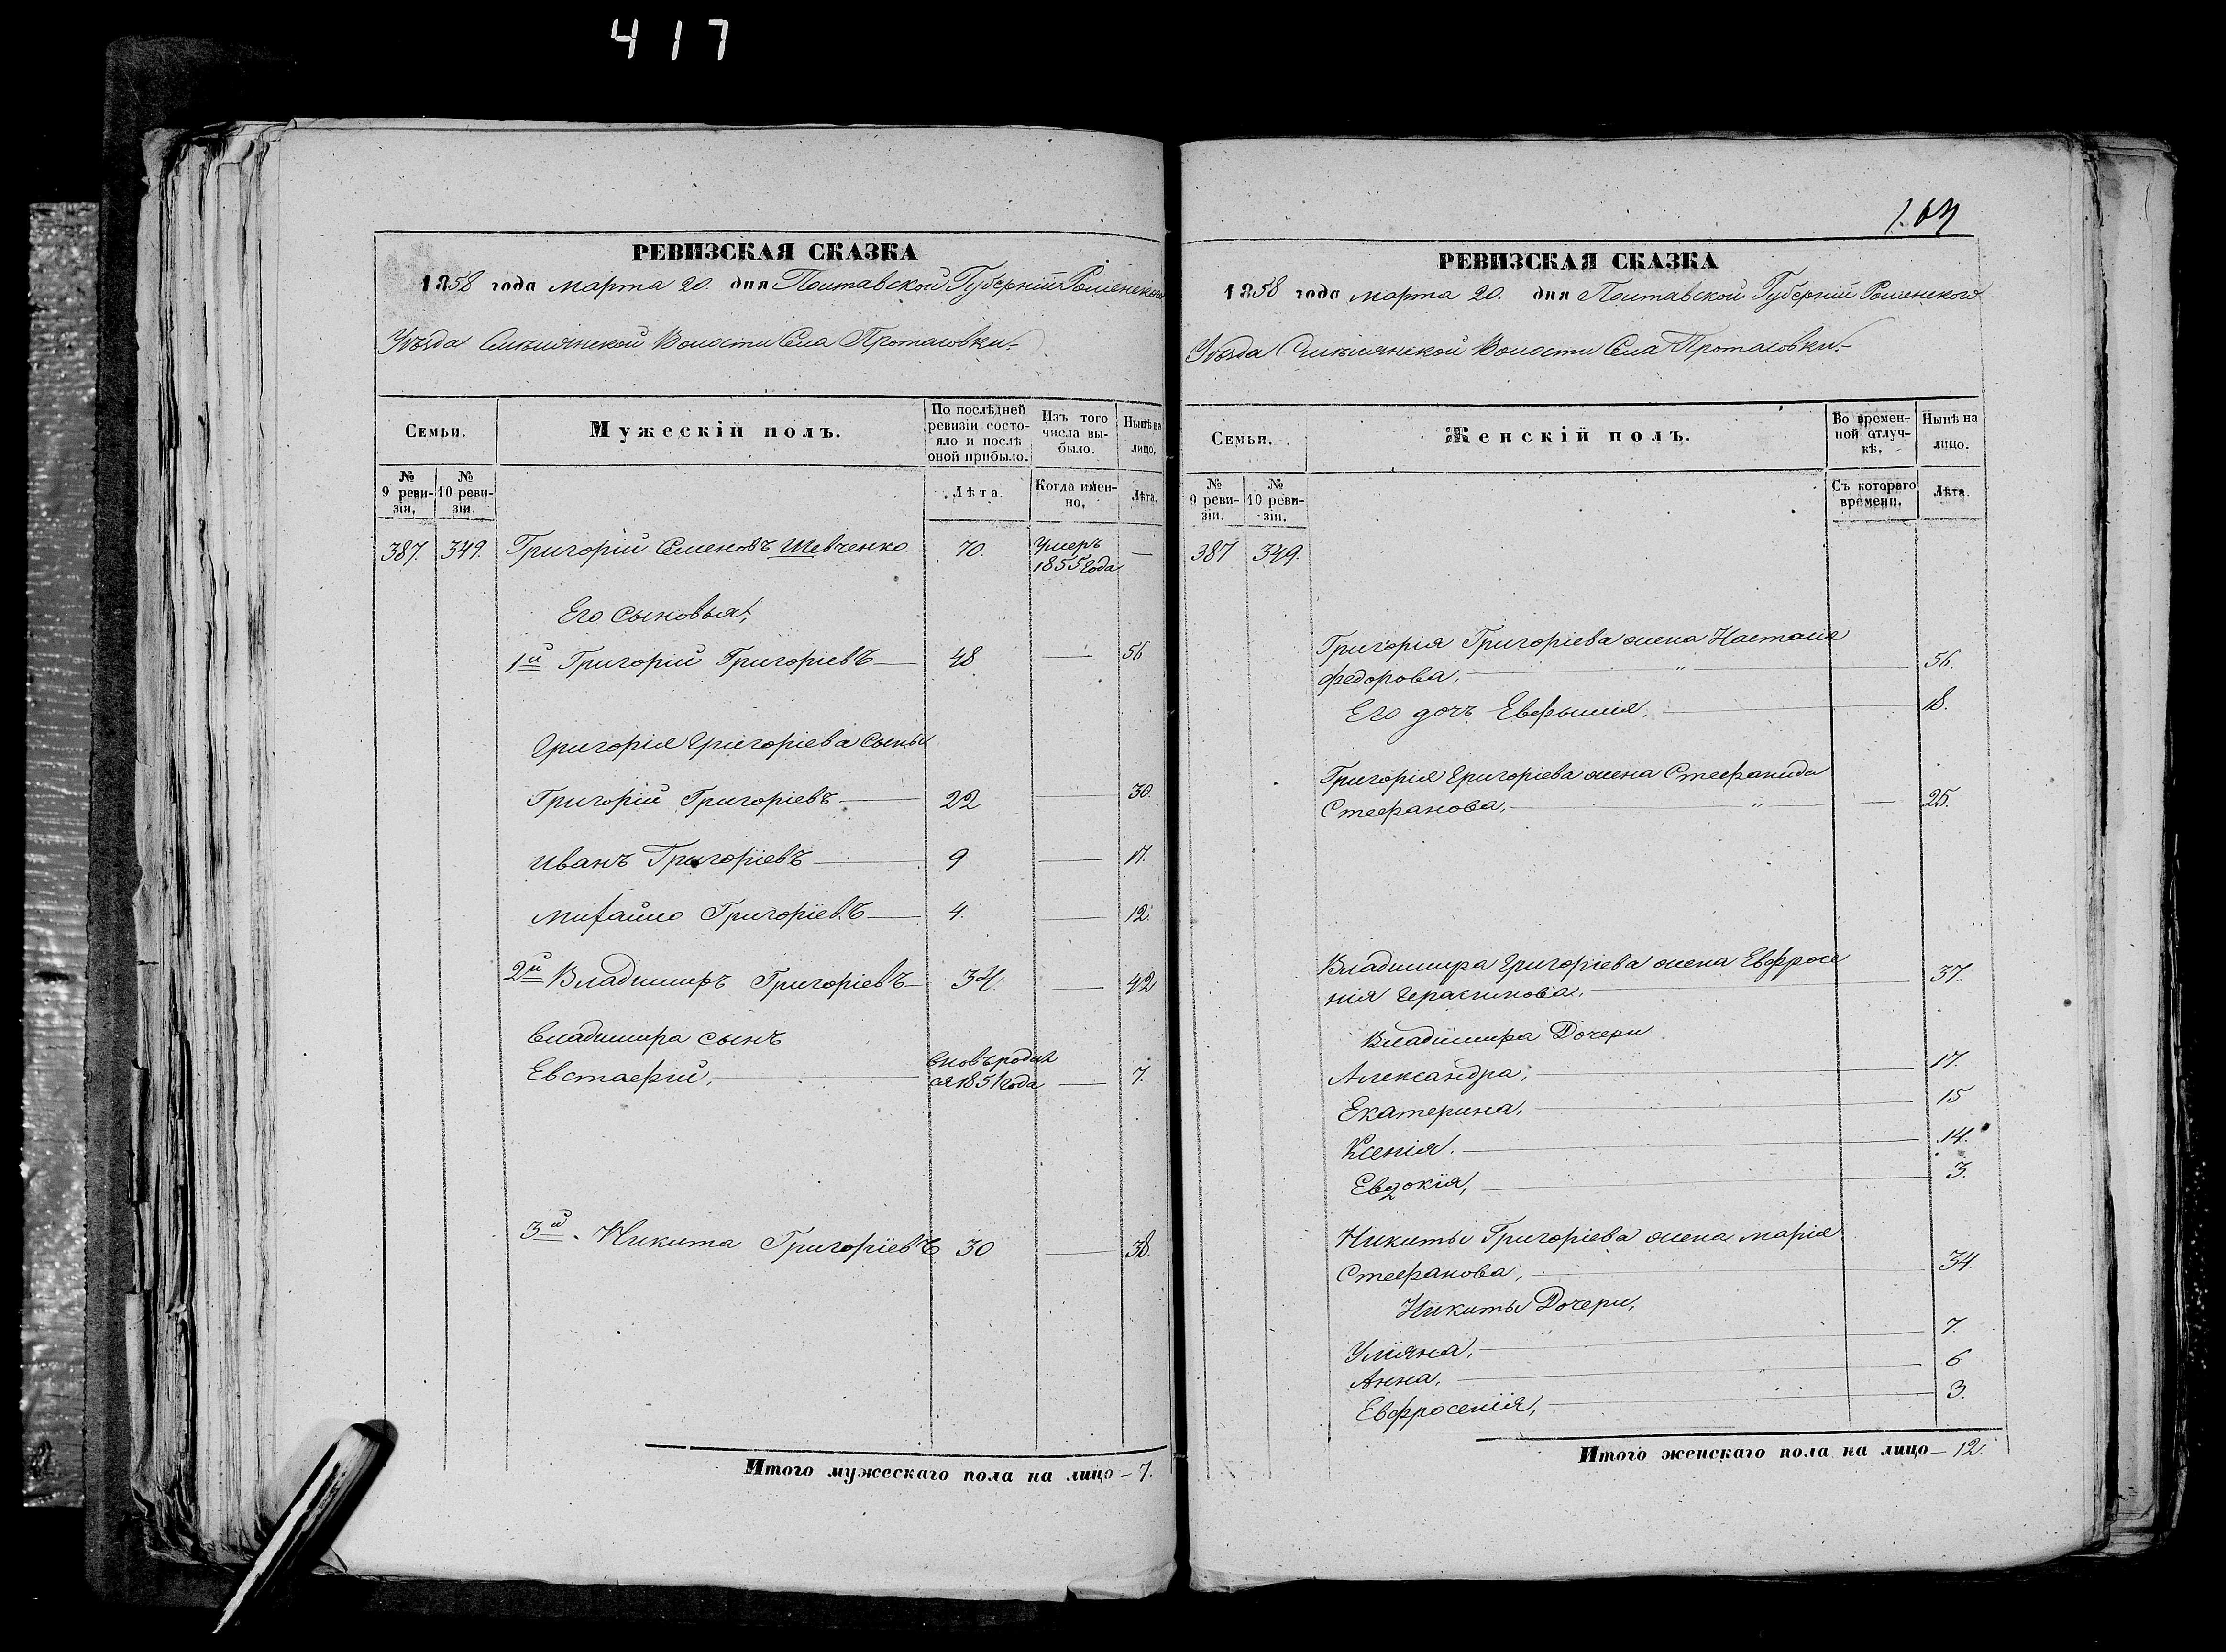 417
РЕВИЗСКАЯ СКАЗКА
1858 года марта 20. дня Полтавской Губерніи Роменскаго
Уѣзда Смѣлянской Волости Села Протасовки.
Семьи.
Мужескій полъ.
По послѣдней ревизіи состояло и послѣ оной прибыло.
Изъ того числа выбыло.
Нынѣ на лицо.
№ 9 ревизіи.
№ 10 ревизіи.
Лѣта.
Когда именно.
Лѣта.
387. 349. Григорій Семеновъ Шевченко 70. Умеръ 1855 года —
Его сыновья:
1й Григорій Григоріевъ — 48 — 56
Григорія Григоріева сыны
Григорій Григоріевъ — 22 — 30.
Иванъ Григоріевъ — 9 — 17.
Михайло Григоріевъ — 4. — 12.
2й Владимиръ Григоріевъ — 34. — 42
Владимира сынъ
Евстафій, — вновь родился 1851 года — 7.
3й. Никита Григоріевъ 30 — 38.
Итого мужескаго пола на лицо — 7.
РЕВИЗСКАЯ СКАЗКА
1858 года марта 20. дня Полтавской Губерніи Роменскаго
Уѣзда Смѣлянской Волости Села Протасовки.
Семьи.
Женскій полъ.
Во временной отлучкѣ.
Нынѣ на лицо.
№ 9 ревизіи.
№ 10 ревизіи.
Съ котораго времени.
Лѣта.
387 349.
Григорія Григоріева жена Настасія
Федорова, — " — 56.
Его дочь — 18.
Григорія Григоріева жена Стефанида
Стефанова, — " — 25.
Владимира Григоріева жена Евфросе
нія Герасимова, — 37.
Владимира Дочери
Александра, — 17.
Екатерина, — 15
Ксенія. — 14.
Евдокія, — 3.
Никиты Григоріева жена Марія
Стефанова, — 34.
Никиты Дочери,
Уліяна, — 7.
Анна, — 6
Евфросенія, — 3.
Итого женскаго пола на лицо — 12.